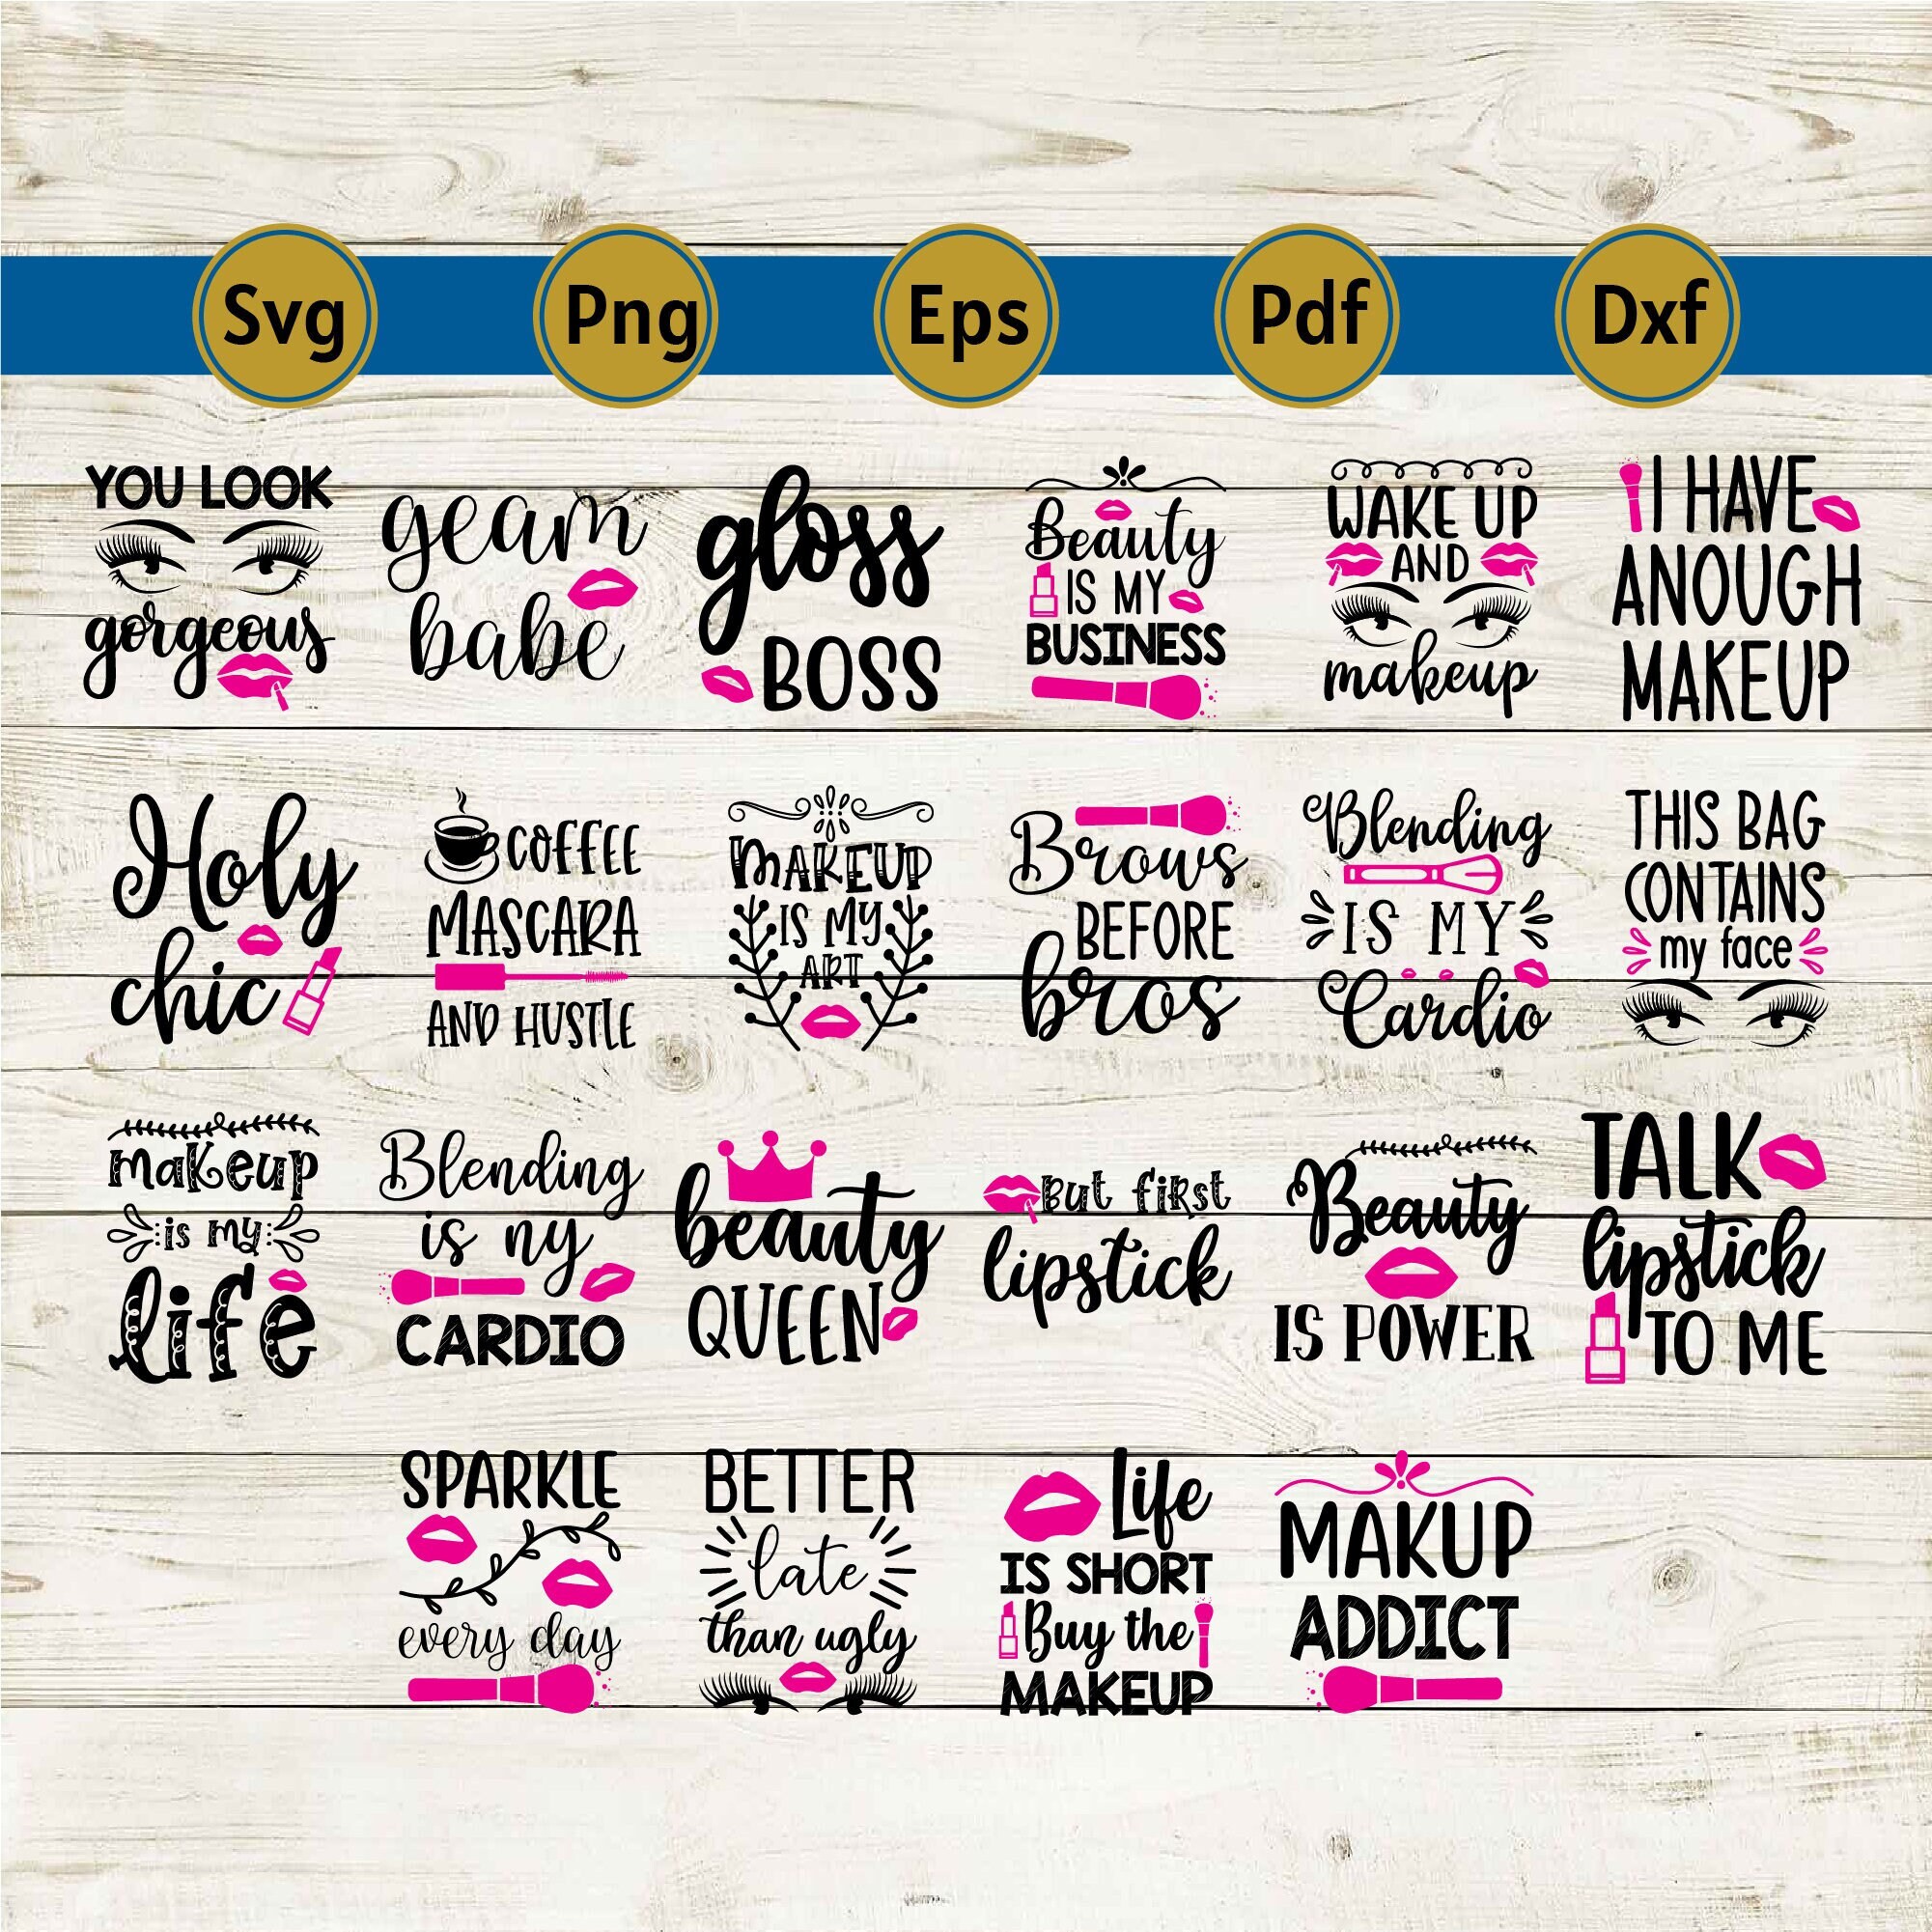 Svg
Png
Eps
Pdf
Dxf
YOU LOOK
gorgeous
geam
babe
gloss
BOSS
Beauty
IS MY
BUSINESS
WAKE UP
AND
makeup
I HAVE
ANOUGH
MAKEUP
Holy
chic
COFFEE
MASCARA
AND HUSTLE
MAKEUP
IS MY
ART
Brows
BEFORE
bros
Blending
IS MY
Cardio
THIS BAG
CONTAINS
my face
makeup
is my
life
Blending
is ny
CARDIO
beauty
QUEEN
But first
lipstick
Beauty
IS POWER
TALK
lipstick
TO ME
SPARKLE
every day
BETTER
late
than ugly
Life
IS SHORT
Buy the
MAKEUP
MAKUP
ADDICT